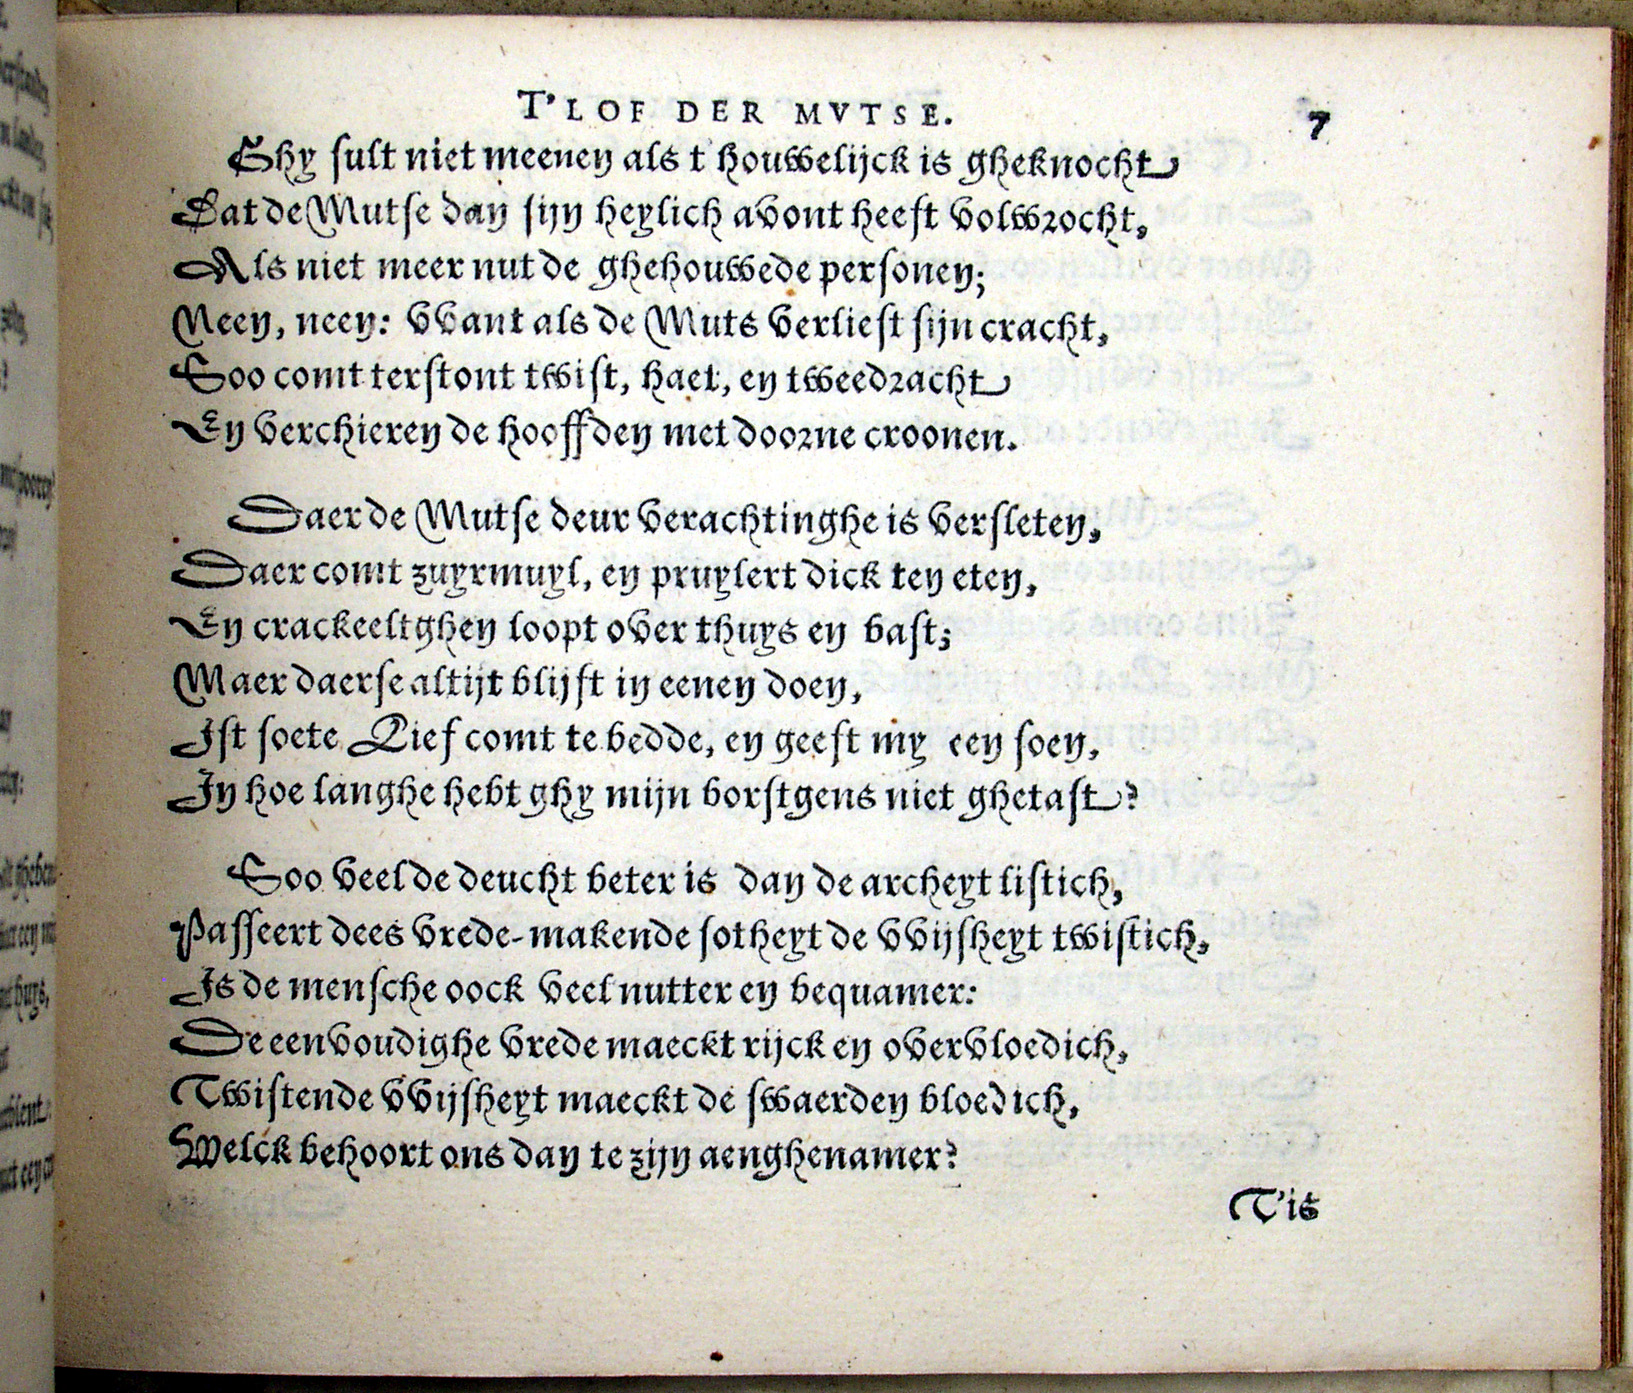 T'LOF DER MVTSE. 7
Ghy sult niet meenen als t houwelijck is gheknocht
Dat de Mutse dan sijn heylich avont heeft volwrocht,
Als niet meer nut de ghehouwede personen;
Neen, neen: VVant als de Muts verliest sijn cracht,
Soo comt terstont twist, haet, en tweedracht
En verchieren de hooffden met doorne croonen.
Daer de Mutse deur verachtinghe is versleten,
Daer comt zuyrmuyl, en pruylert dick ten eten,
En crackeeltghen loopt over thuys en bast;
Maer daerse altijt blijft in eenen doen,
Ist soete Lief comt te bedde, en geeft my een soen,
In hoe langhe hebt ghy mijn borstgens niet ghetast?
Soo veel de deucht beter is dan de archeyt listich,
Passeert dees vrede-makende sotheyt de VVijsheyt twistich,
Is de mensche oock veel nutter en bequamer:
De eenvoudighe vrede maeckt rijck en overvloedich,
Twistende VVijsheyt maeckt de swaerden bloedich,
Welck behoort ons dan te zijn aenghenamer?
T'is